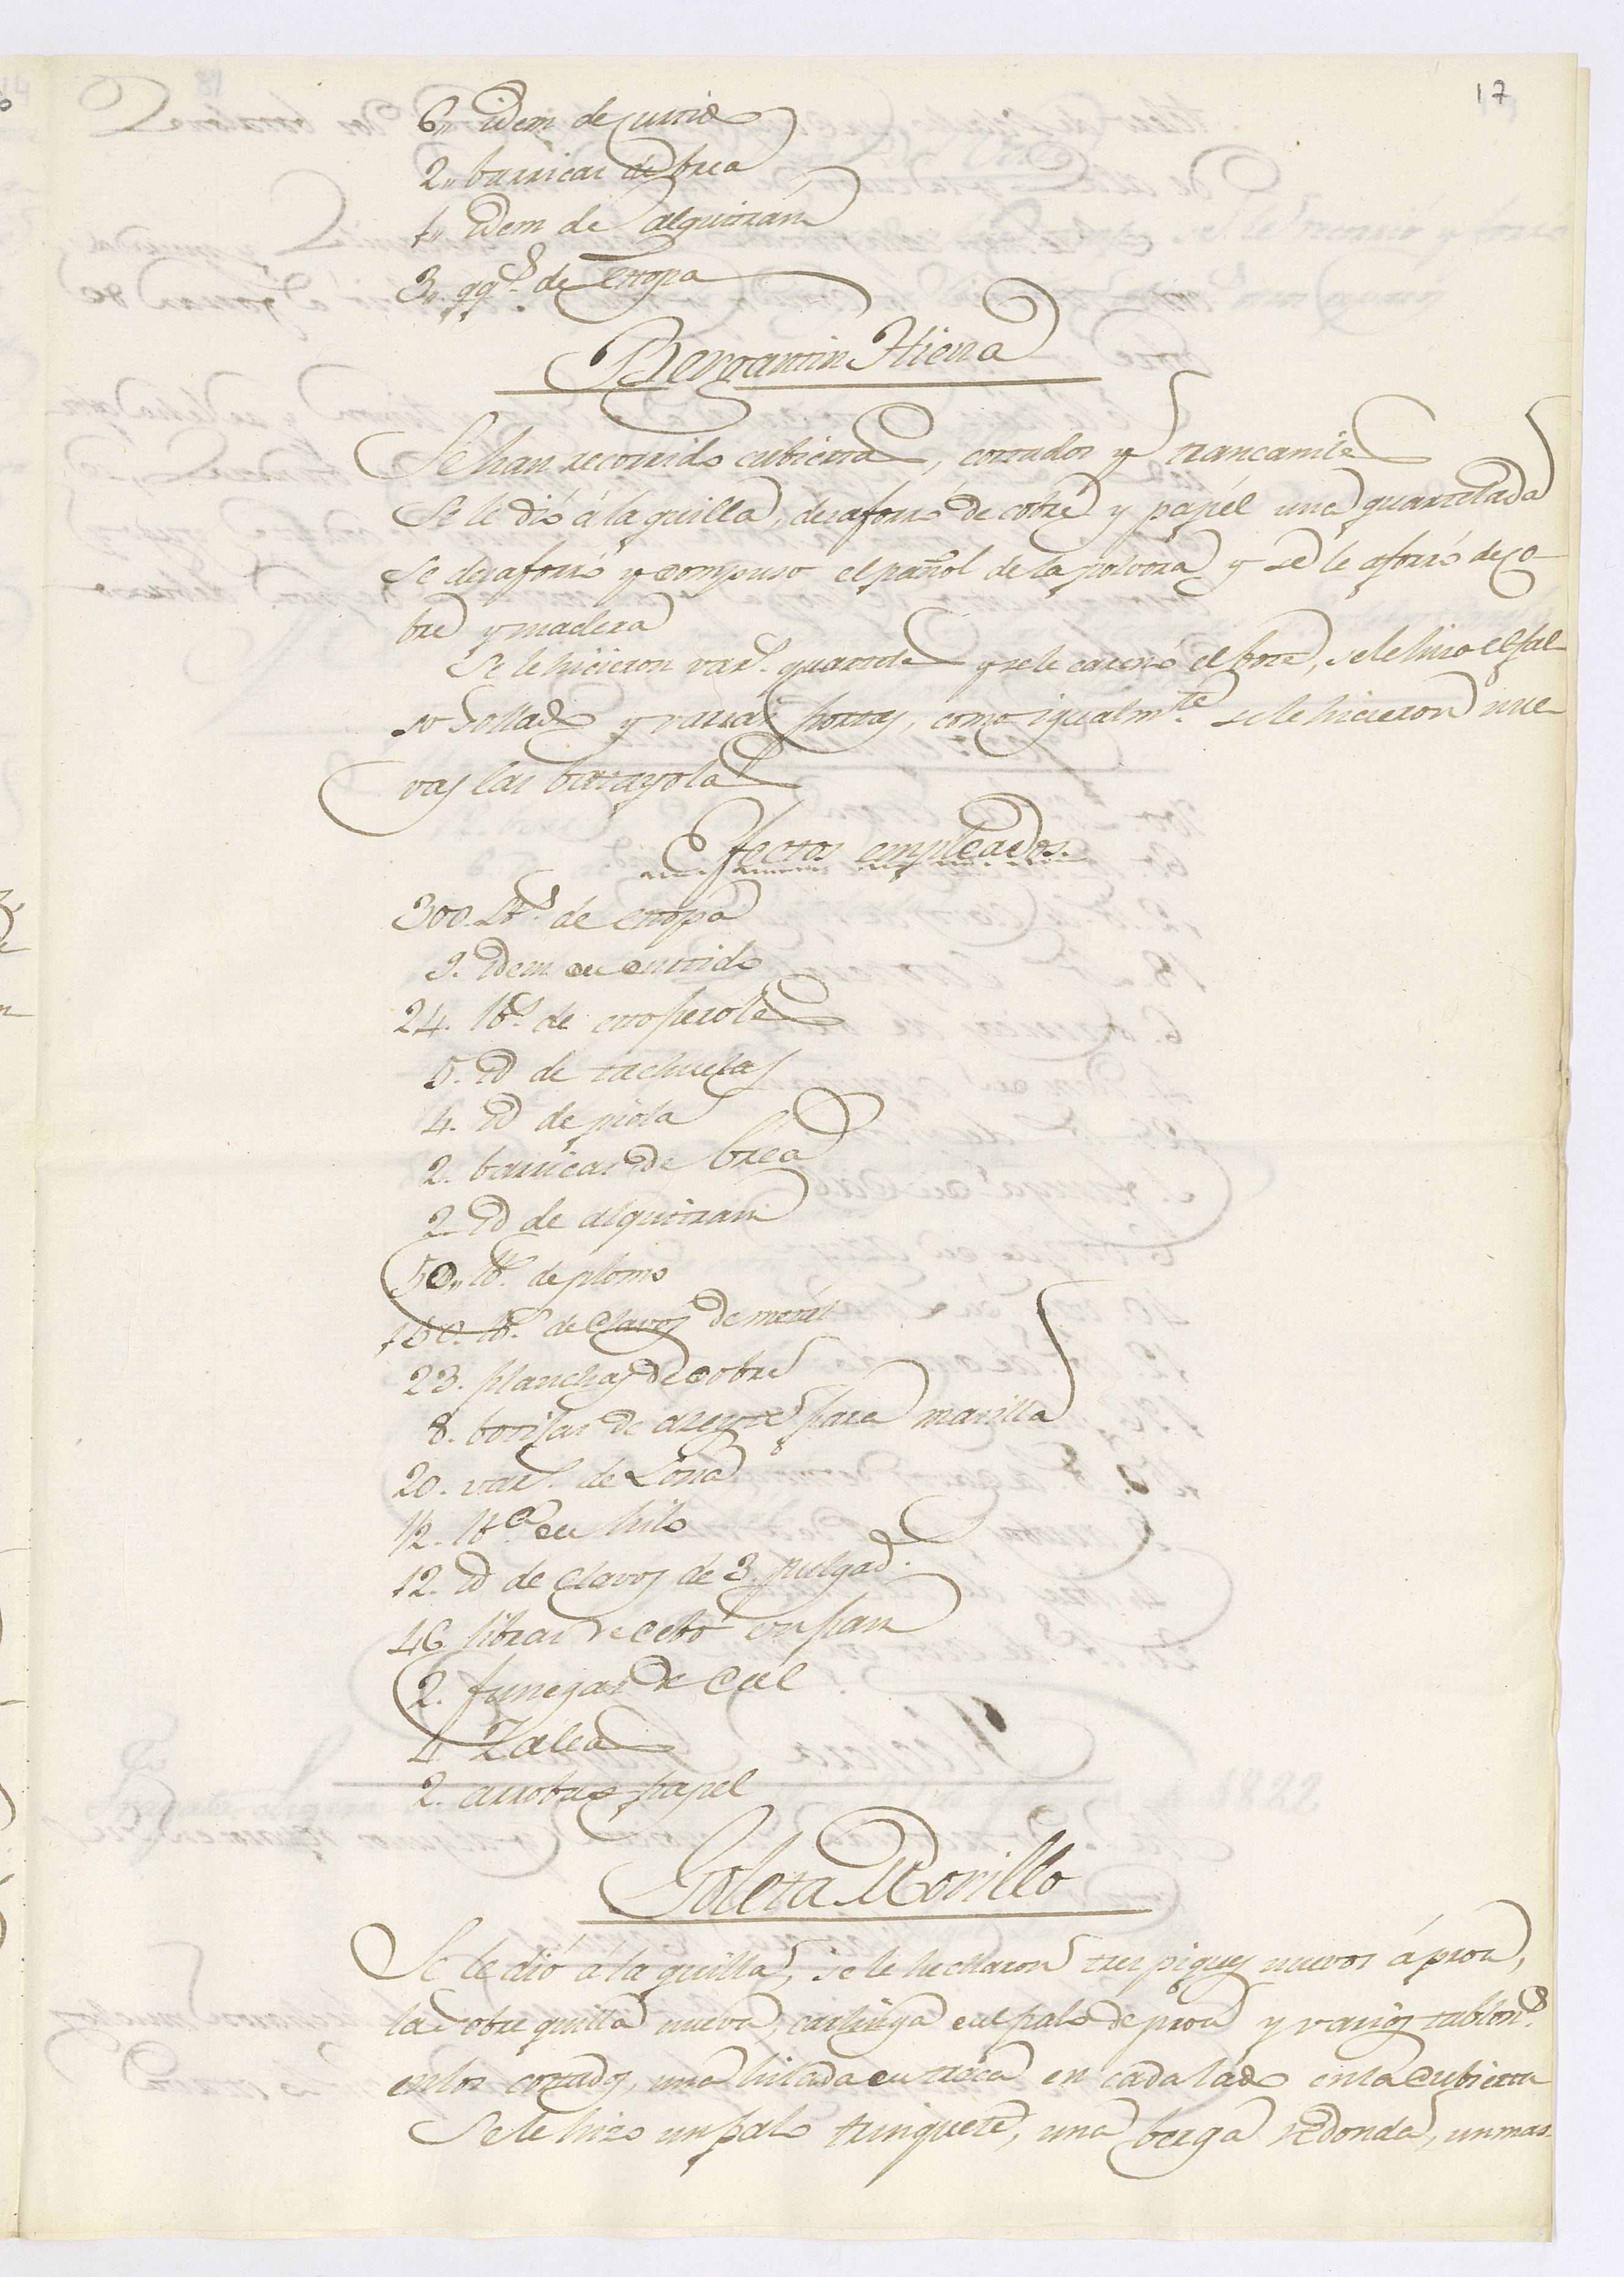 17
6,, idem de curtido
2,, barricas de brea
1,, idem de alquitrán
3,, qq.s de Estopa
Bergantin Hiena
Se han recorrido cubierta, costados y trancaniles
Se le dió á la quilla, desaforró de cobre y papél una quartelada
Se desaforró y compuso el pañol de la polvora y se le aforró de co-
bre y madera
Se le hicieron var.s quarteles y se le carenó el bote, se le hizo el fal-
so sollado y varias portas, como igualm.te se le hicieron nue-
vas las batayolas
Efectos empleados.
300. lb.s de estopa
9. idem de curtido
24. lb.s de estoperoles
5. id de tachuelas
4. id de piola
2. barricas de brea
2. id de alquitran
50,, lb.s de plomo
150. lb.s de clavos de metál
23. planchas de cobre
8. botijas de azeyte para masilla
20. var.s de Lona
1/2. lb.a de hilo
12. id de clavos de 3 pulgad.s
46 libras de cebo en pan
2. fanegas de Cal
4 Zaleas
2. arrobas papel
Goleta Morillo
Se le dió á la quilla, se le hecharon tres piques nuevos á proa,
la sobre quilla nueva, carlinga del palo de proa y varios tablon.s
en los costados, una hilada de traca en cada lado en la cubierta
Se le hizo un palo trinquete, una berga redonda, un mas-